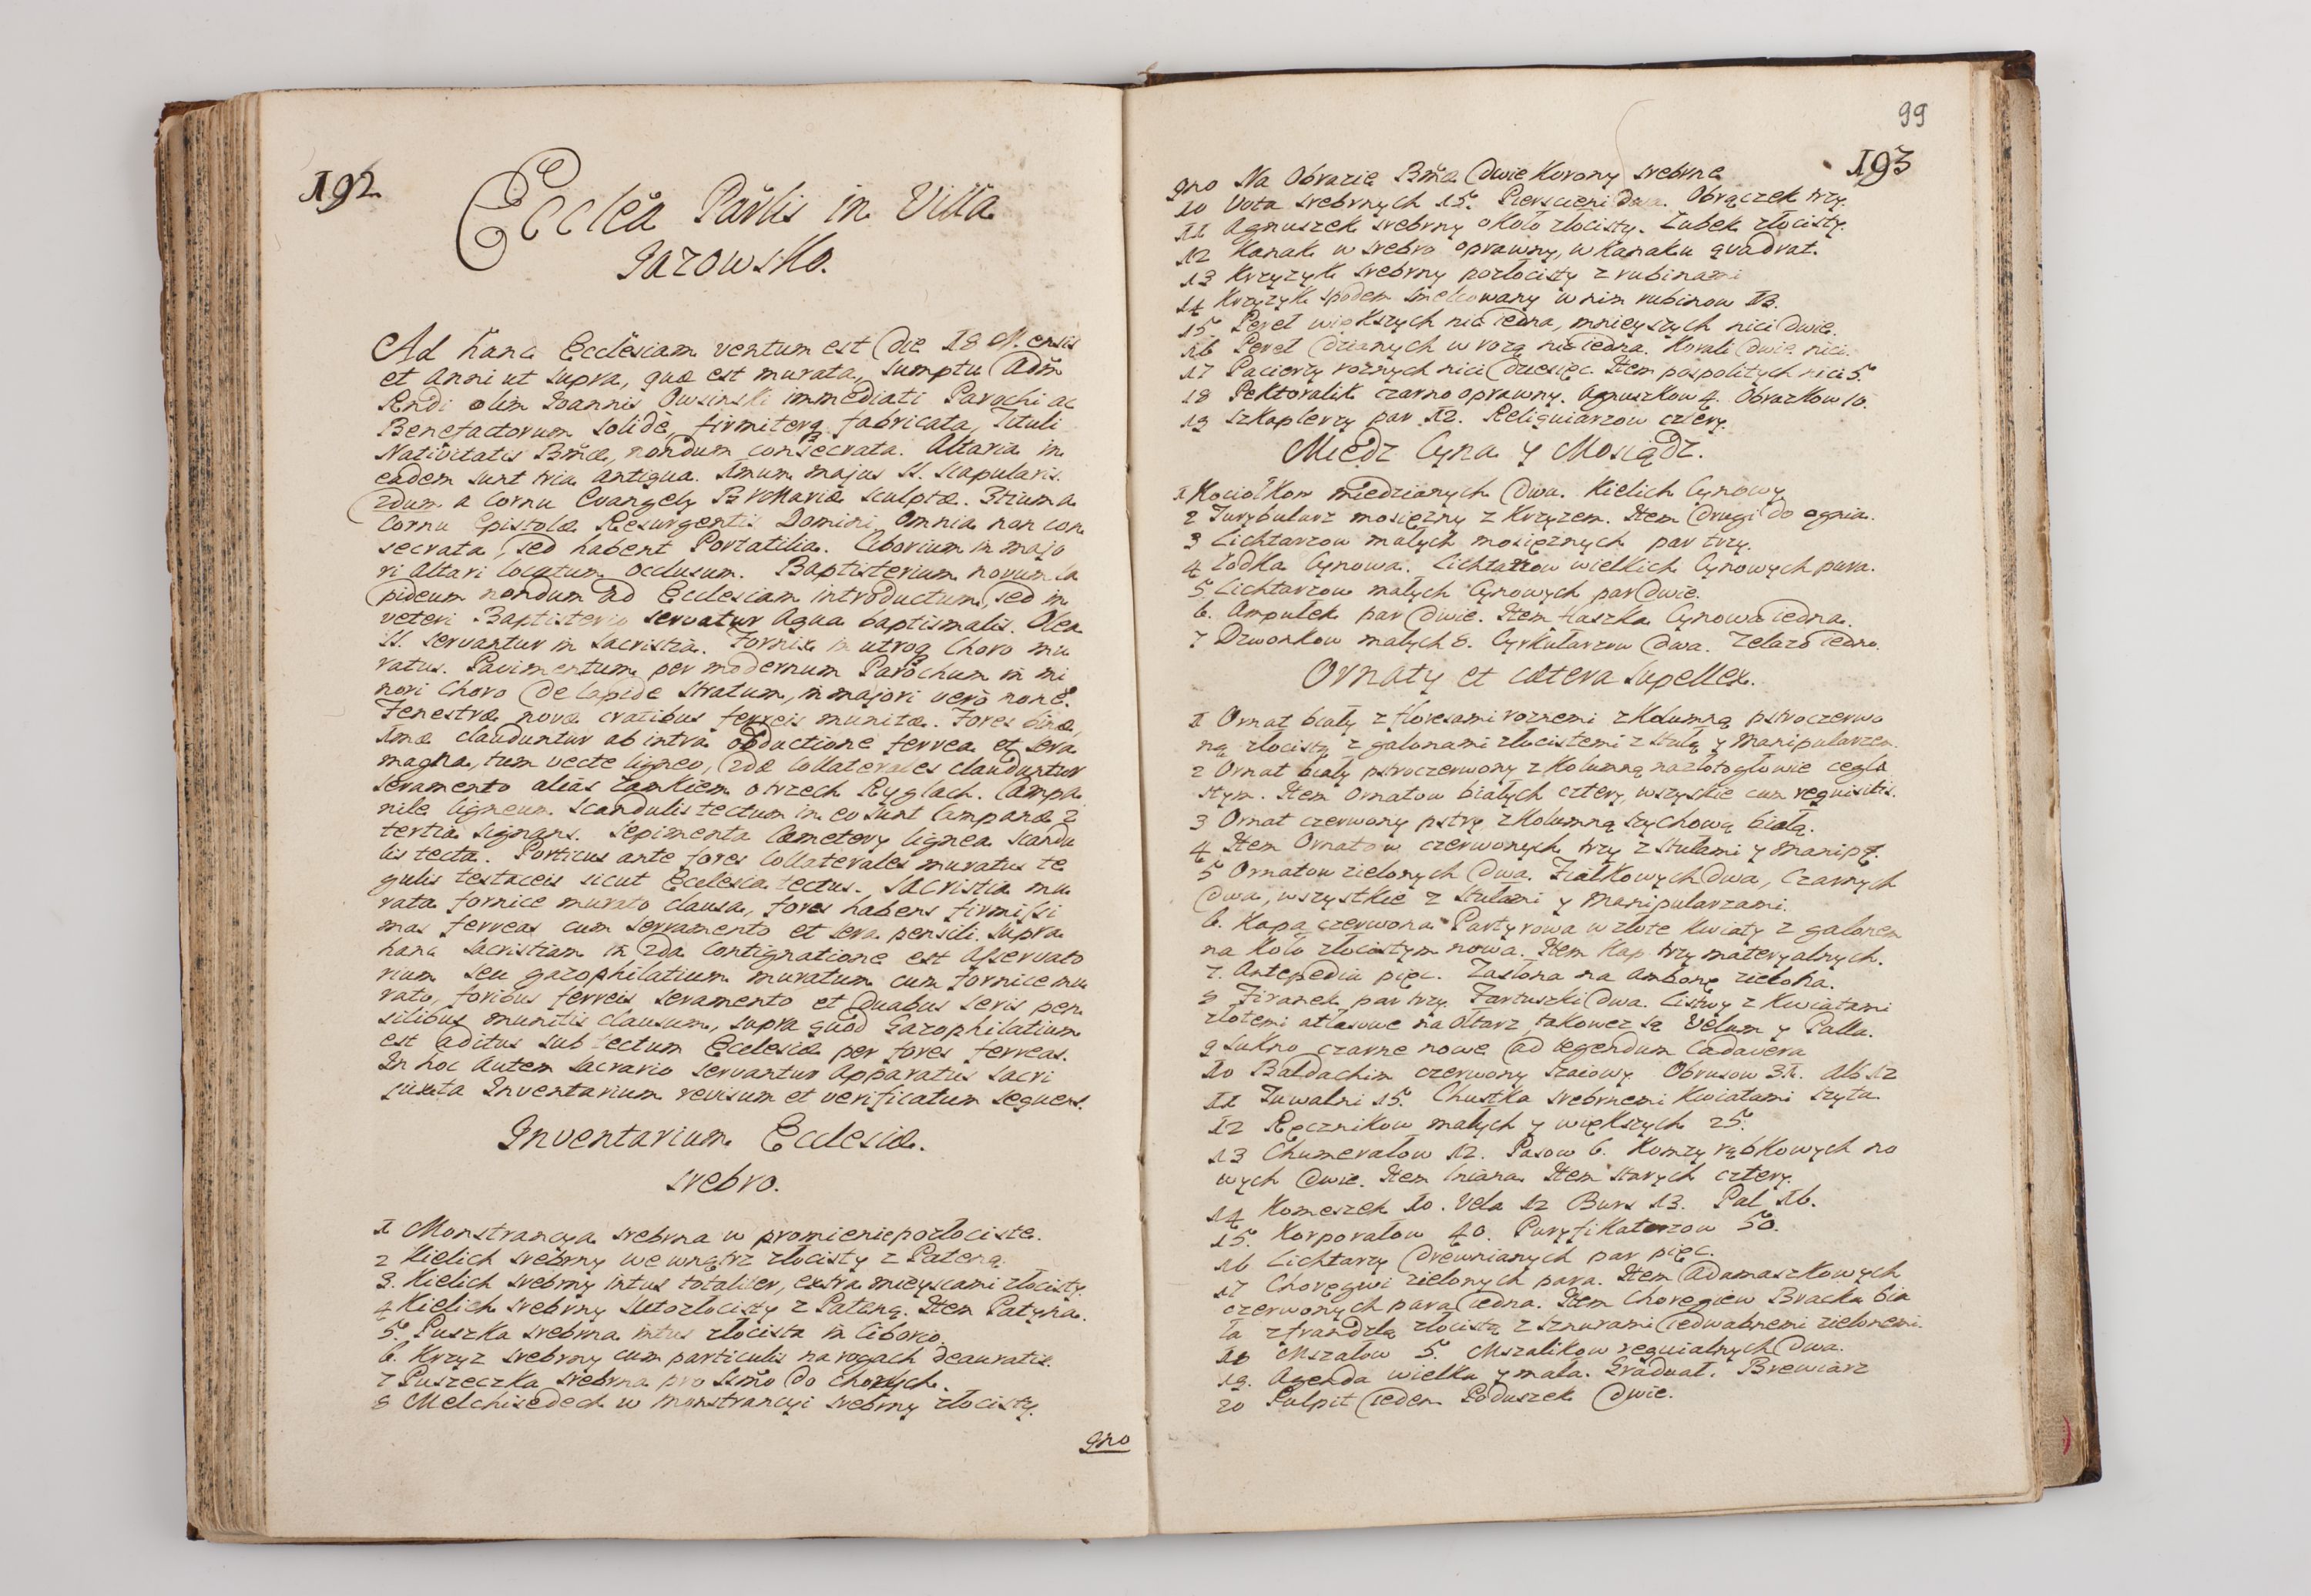 192
Ecclēa Parlis in Villa
Jazowsko.
Ad hanc Ecclesiam ventum est die 18 Mensis
et Anni ut supra, quæ est murata, sumptu Adm
Rndi olim Joannis Owsinski immediati Parochi ac
Benefactorum solidè, firmiterq fabricata, Tituli
Nativitatis Bmæ, nondum consecrata. Altaria in
eadem sunt tria antiqua. 1mum majus SS. Scapularis.
2dum a Cornu Evangely B V Mariæ sculptæ. 3tium a
Cornu Epistolæ Resurgentis Domini omnia non con
secrata, sed habent Portatilia. Ciborium in majo
ri Altari locatum occlusum. Baptisterium novum la
pideum nondum ad Ecclesiam introductum, sed in
veteri Baptisterio servatur Aqua baptismalis. Olea
SS. servantur in Sacristia. Fornix in utroq Choro mu
ratus. Pavimentum per modernum Parochum in mi
nori Choro de lapide stratum, in majori verò non ē.
Fenestræ novæ cratibus ferreis munitæ. Fores binæ,
1mæ clauduntur ab intra obductione ferrea et sera
magna, tum vecte ligneo, 2dæ Collaterales clauduntur
seramento aliàs Zamkiem o trzech Ryglach. Campa
nile ligneum scandulis tectum in eo sunt Campanæ 2
tertia signans. Sepimenta Cæmetery lignea scandu
lis tecta. Porticus ante fores Collaterales muratus te
gulis testaceis sicut Ecclesia tectus. Sacristia mu
rata fornice murato clausa, fores habens firmissi
mas ferreas cum serramento et sera pensili. Supra
hanc Sacristiam in 2da Contignatione est Asservato
rium seu gazophilatium muratum cum fornice mu
rato, foribus ferreis seramento et duabus seris pen
silibus munitis clausum, supra quod Gazophilatium
est aditus sub tectum Ecclesiæ per fores ferreas.
In hoc autem Sacrario servantur Apparatus Sacri
juxta Inventarium revisum et verificatum sequens.
Inventarium Ecclesiæ.
Srebro.
1 Monstrancya srebrna w promienie pozłociste.
2 Kielich srebrny wewnątrz złocisty z Pateną.
3. Kielich srebrny intus totaliter, extra mieyscami złocisty.
4 Kielich srebrny suto złocisty z Pateną. Item Patyna.
5. Puszka srebrna intus złocista in Ciborio.
6. Krzyz srebrny cum particulis na rogach deauratis.
7 Puszeczka srebrna pro Ssmo do Chorych.
8 Melchisedech w monstrancyi srebrny złocisty.
9no
99
193
9no Na Obrazie Bmæ dwie Korony srebrne
10 Vota srebrnych 15. Pierscieni dwa. Obrączek trzy.
11 Agnuszek srebrny około złocisty. Łubek złocisty.
12 Kanak w srebro oprawny, w Kanaku quadrat.
13 Krzyzyk srebrny pozłocisty z rubinami
14 Krzyzyk spodem smelcowany w nim rubinow 13.
15 Pereł większych nić iedna, mnieyszych nici dwie.
16 Pereł dzianych w rozą nić iedna. Korali dwie nici.
17 Pacierzy roznych nici dziesięc. Item pospolitych nici 5.
18 Pektoralik czarno oprawny. Agnuszkow 4. Obrazkow 10.
19 Szkaplerzy par 12. Reliquiarzow cztery.
Miedz Cyna y Mosiądz.
1 Kociołkow miedzianych dwa. Kielich Cynowy
2 Turybularz mosięzny z Krzyzem. Item drugi do ognia.
3 Lichtarzow małych mosięznych par trzy.
4 Łodka Cynowa. Lichtarzow wielkich Cynowych para.
5 Lichtarzow małych Cynowych par dwie.
6. Ampułek par dwie. Item flaszka Cynowa iedna.
7 Dzwonkow małych 8. Cyrkularzow dwa. Zelazo iedno.
Ornaty et cætera Supellex.
1 Ornat biały z floresami roznemi z Kolumną pstroczerwo
ną złocistą z galonami złocistemi z Stułą y Manipularzem.
2 Ornat biały pstroczerwony z Kolumną na złotogłowie cegla
stym. Item Ornatow białych cztery, wszyskie cum requisitis.
3 Ornat czerwony pstry z Kolumną szychową białą.
4 Item Ornatow czerwonych trzy z Stułami y Manip.
5 Ornatow zielonych dwa. Fiałkowych dwa, Czarnych
dwa, wszystkie z Stułami y Manipularzami.
6. Kapa czerwona Partyrowa w złote Kwiaty z galonem
na koło złocistym nowa. Item Kap trzy materyalnych.
7. Antepedia pięc. Zasłona na Ambonę zielona.
8 Firanek par trzy. Fartuszki dwa. Listwy z Kwiatami
złotemi atłasowe na Ołtarz, takowez są Velum y Palla.
9 Sukno czarne nowe ad tegendum Cadavera
10 Baldachim czerwony szaiowy. Obrusow 31. Alb 12
11 Tuwalni 15. Chustka srebrnemi Kwiatami szyta
12 Ręcznikow małych y większych 25.
13 Chumerałow 12. Pasow 6. Komzy rąbkowych no
wych dwie. Item lniana. Item starych cztery.
14 Komeszek 10. Vela 12 Burs 13. Pal 16.
15. Korporałow 40. Puryfikaterzow 50.
16 Lichtarzy drewnianych par pięc.
17 Chorągwi zielonych para. Item Adamaszkowych
czerwonych para iedna. Item Chorągiew Bracka bia
ła z frandzlą złocistą z sznurami iedwabnemi zielonemi.
18 Mszałow 5. Mszalikow requialnych dwa.
19. Agenda wielka y mała. Graduał. Brewiarz
20 Pulpit ieden Poduszek dwie.